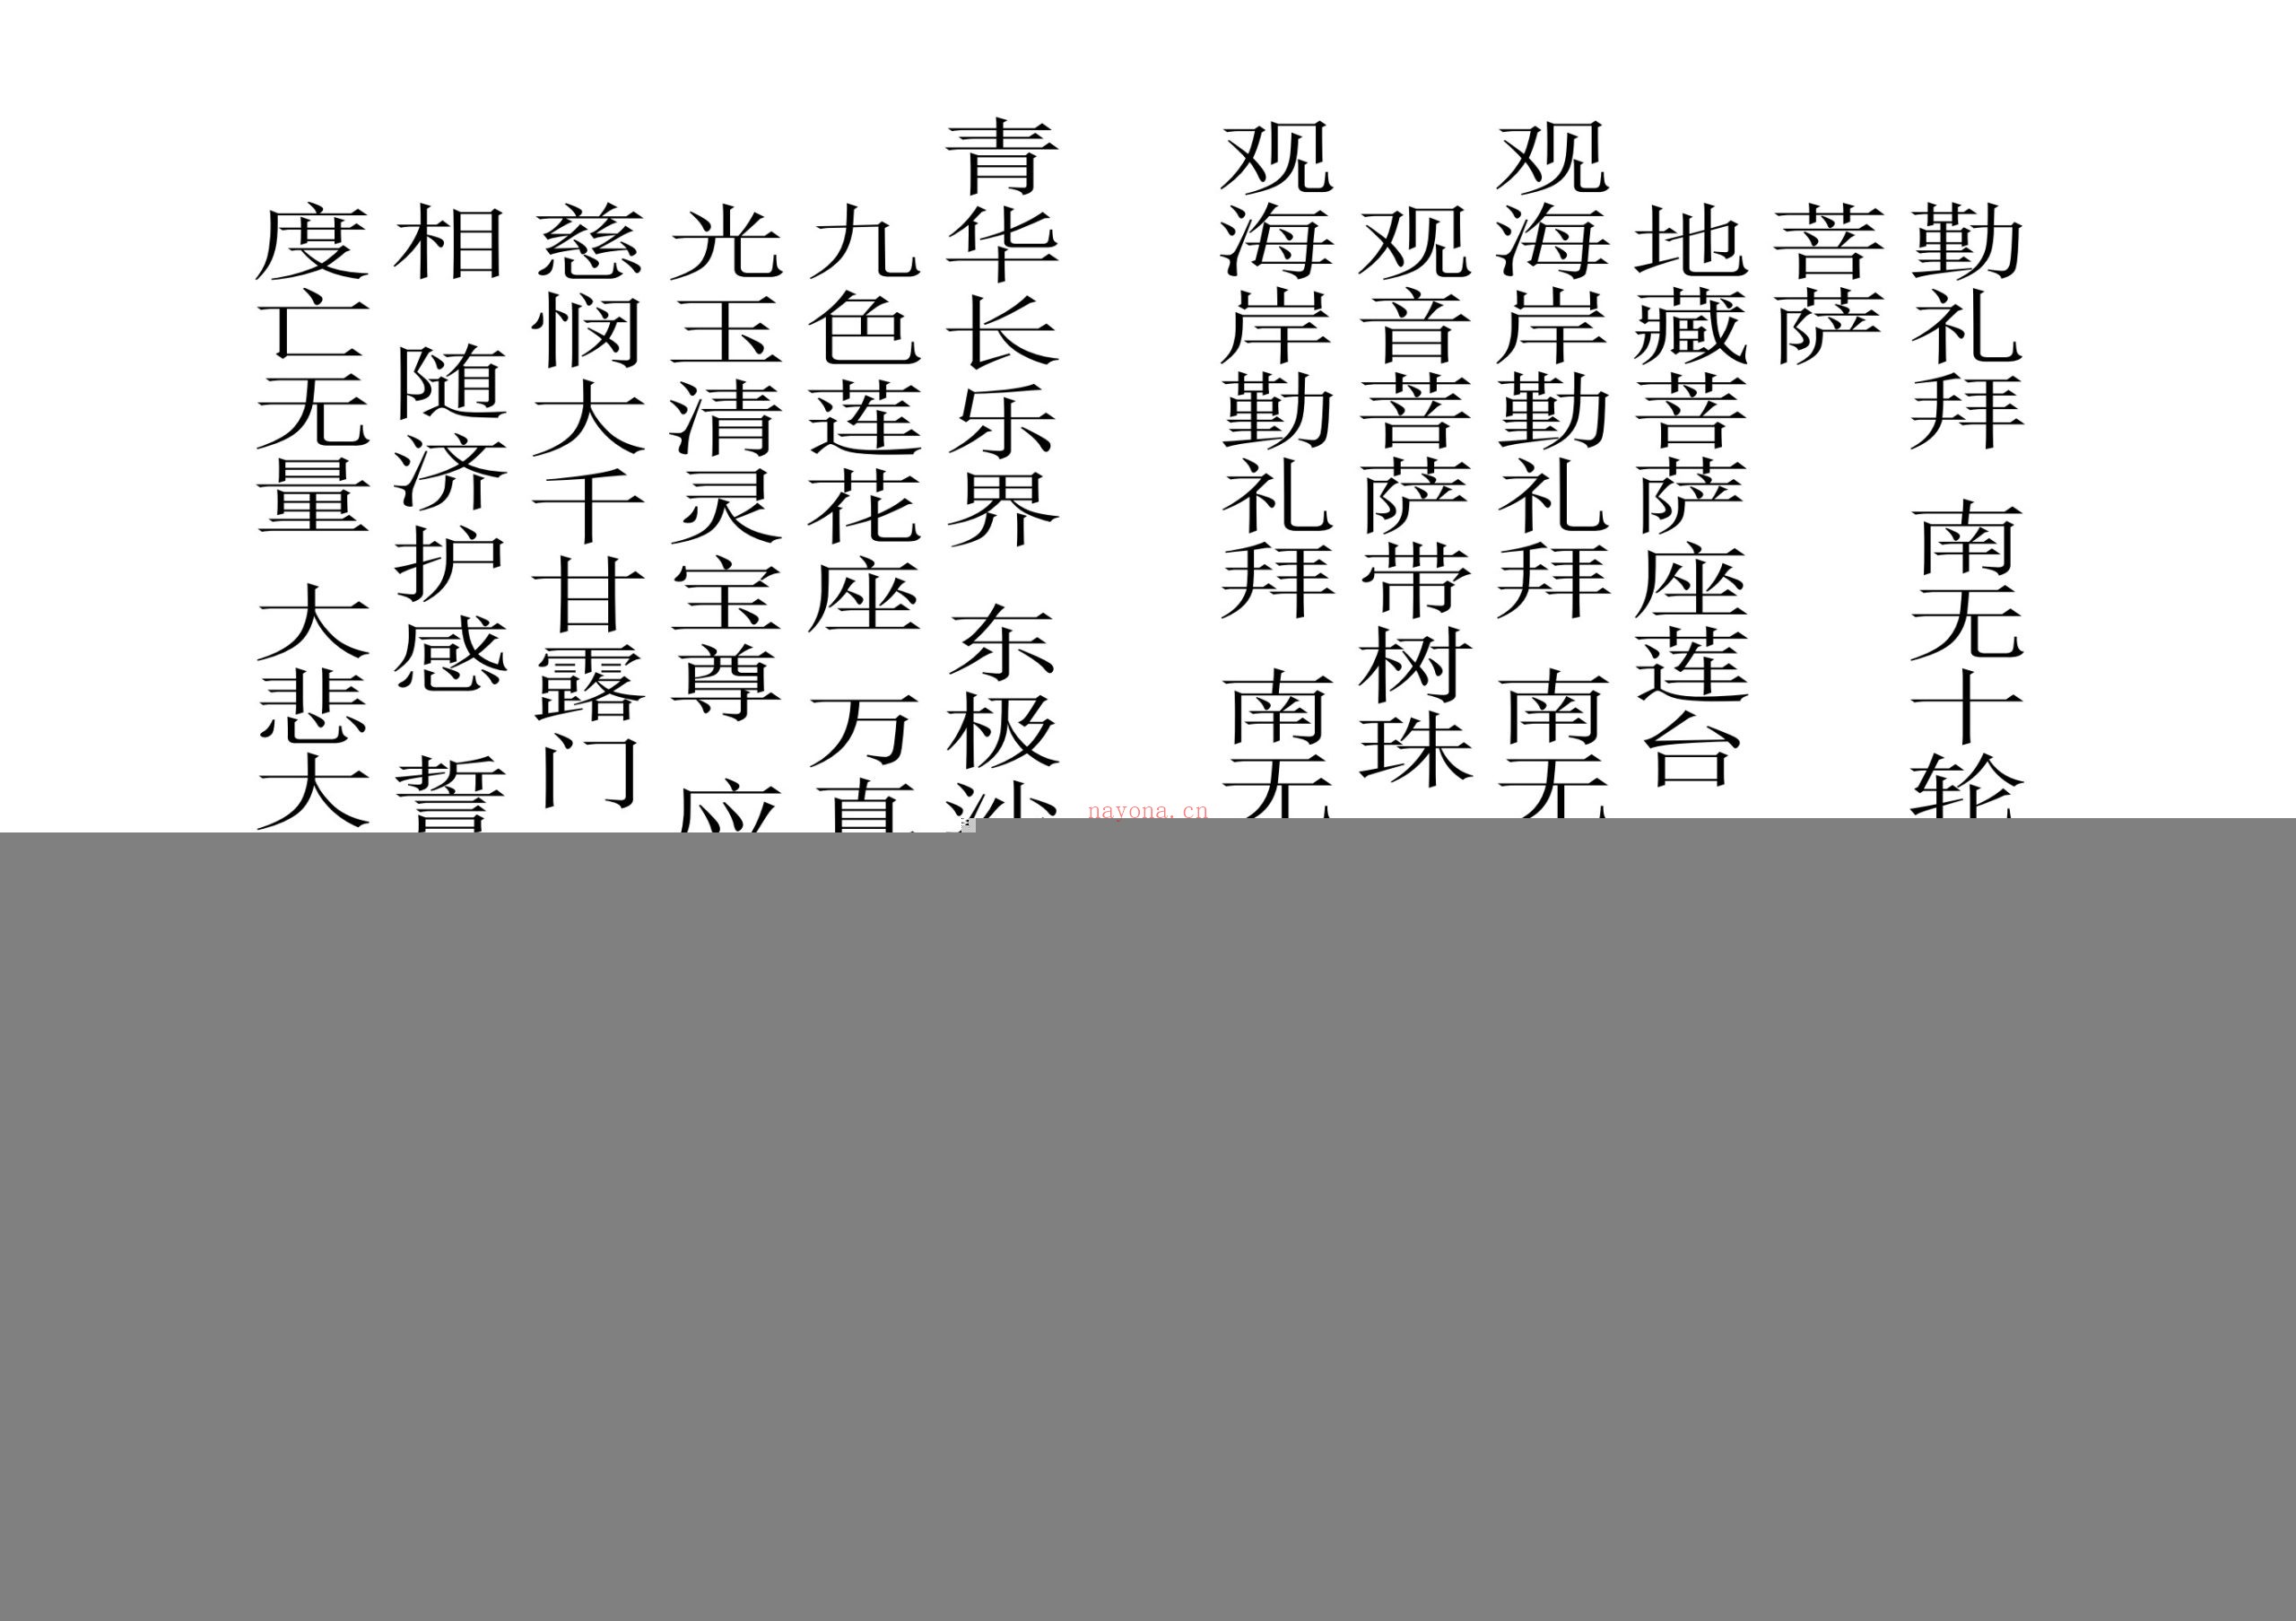 勤礼拜 南无十轮
菩萨
地藏菩萨莲台
观海岸勤礼拜 南无
观音菩萨帝树珠
观海岸勤礼拜 南无
青华长乐界 东极
九色莲花座 万真
光 玉清灵宝尊 应
慈悯大千甘露门
相 随济护感 誓
度亡无量 大悲大
nayona.cn